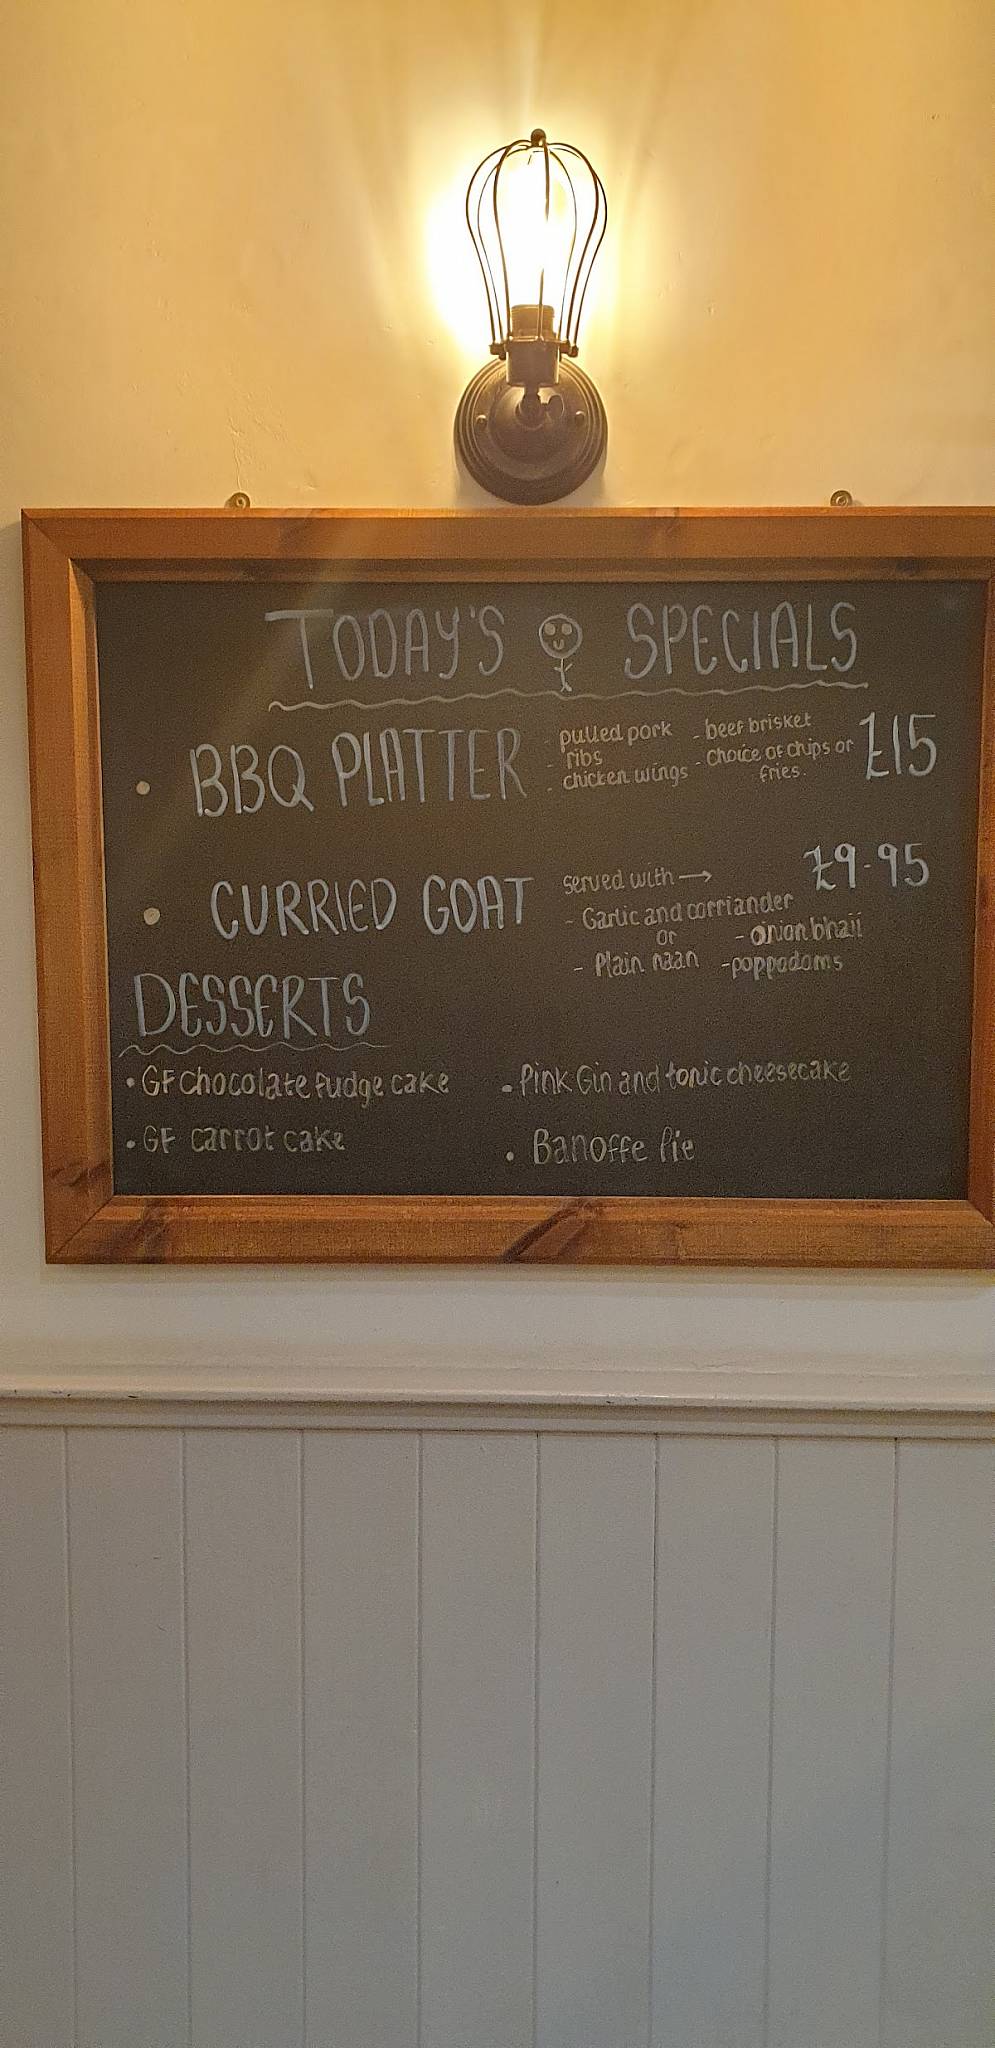 TODAY'S SPECIALS
• BBQ PLATTER
- pulled pork
- ribs
- chicken wings
- beef brisket
- Choice of chips or
fries.
£15
• CURRIED GOAT
served with →
- Garlic and corriander
or
- Plain naan
- onion bhaji
- poppadoms
£9-95
DESSERTS
• GF chocolate fudge cake
• GF carrot cake
• Pink Gin and tonic cheesecake
• Banoffe Pie